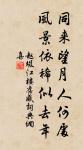 同來望月人何處
風景依稀似去年
趙嘏江樓舊感詞典網